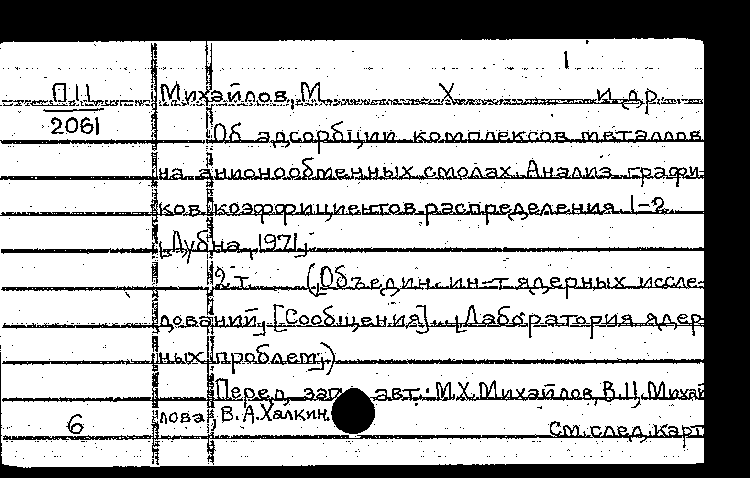 1
П11 Михайлов, М. Х. и др.
2061
Об адсорбции комплексов металлов
на анионообменных смолах. Анализ графи-
ков коэффициентов распределения. 1-2.
[Дубна, 1971]
2 т. ([Объедин. ин-т ядерных иссле-
дований], [Сообщения]... [Лаборатория ядер-
ных проблем])
Перед загл. авт.: М.Х. Михайлов, В.Ц. Михай
6 лова, В.А. Халкин.
См. след. карт